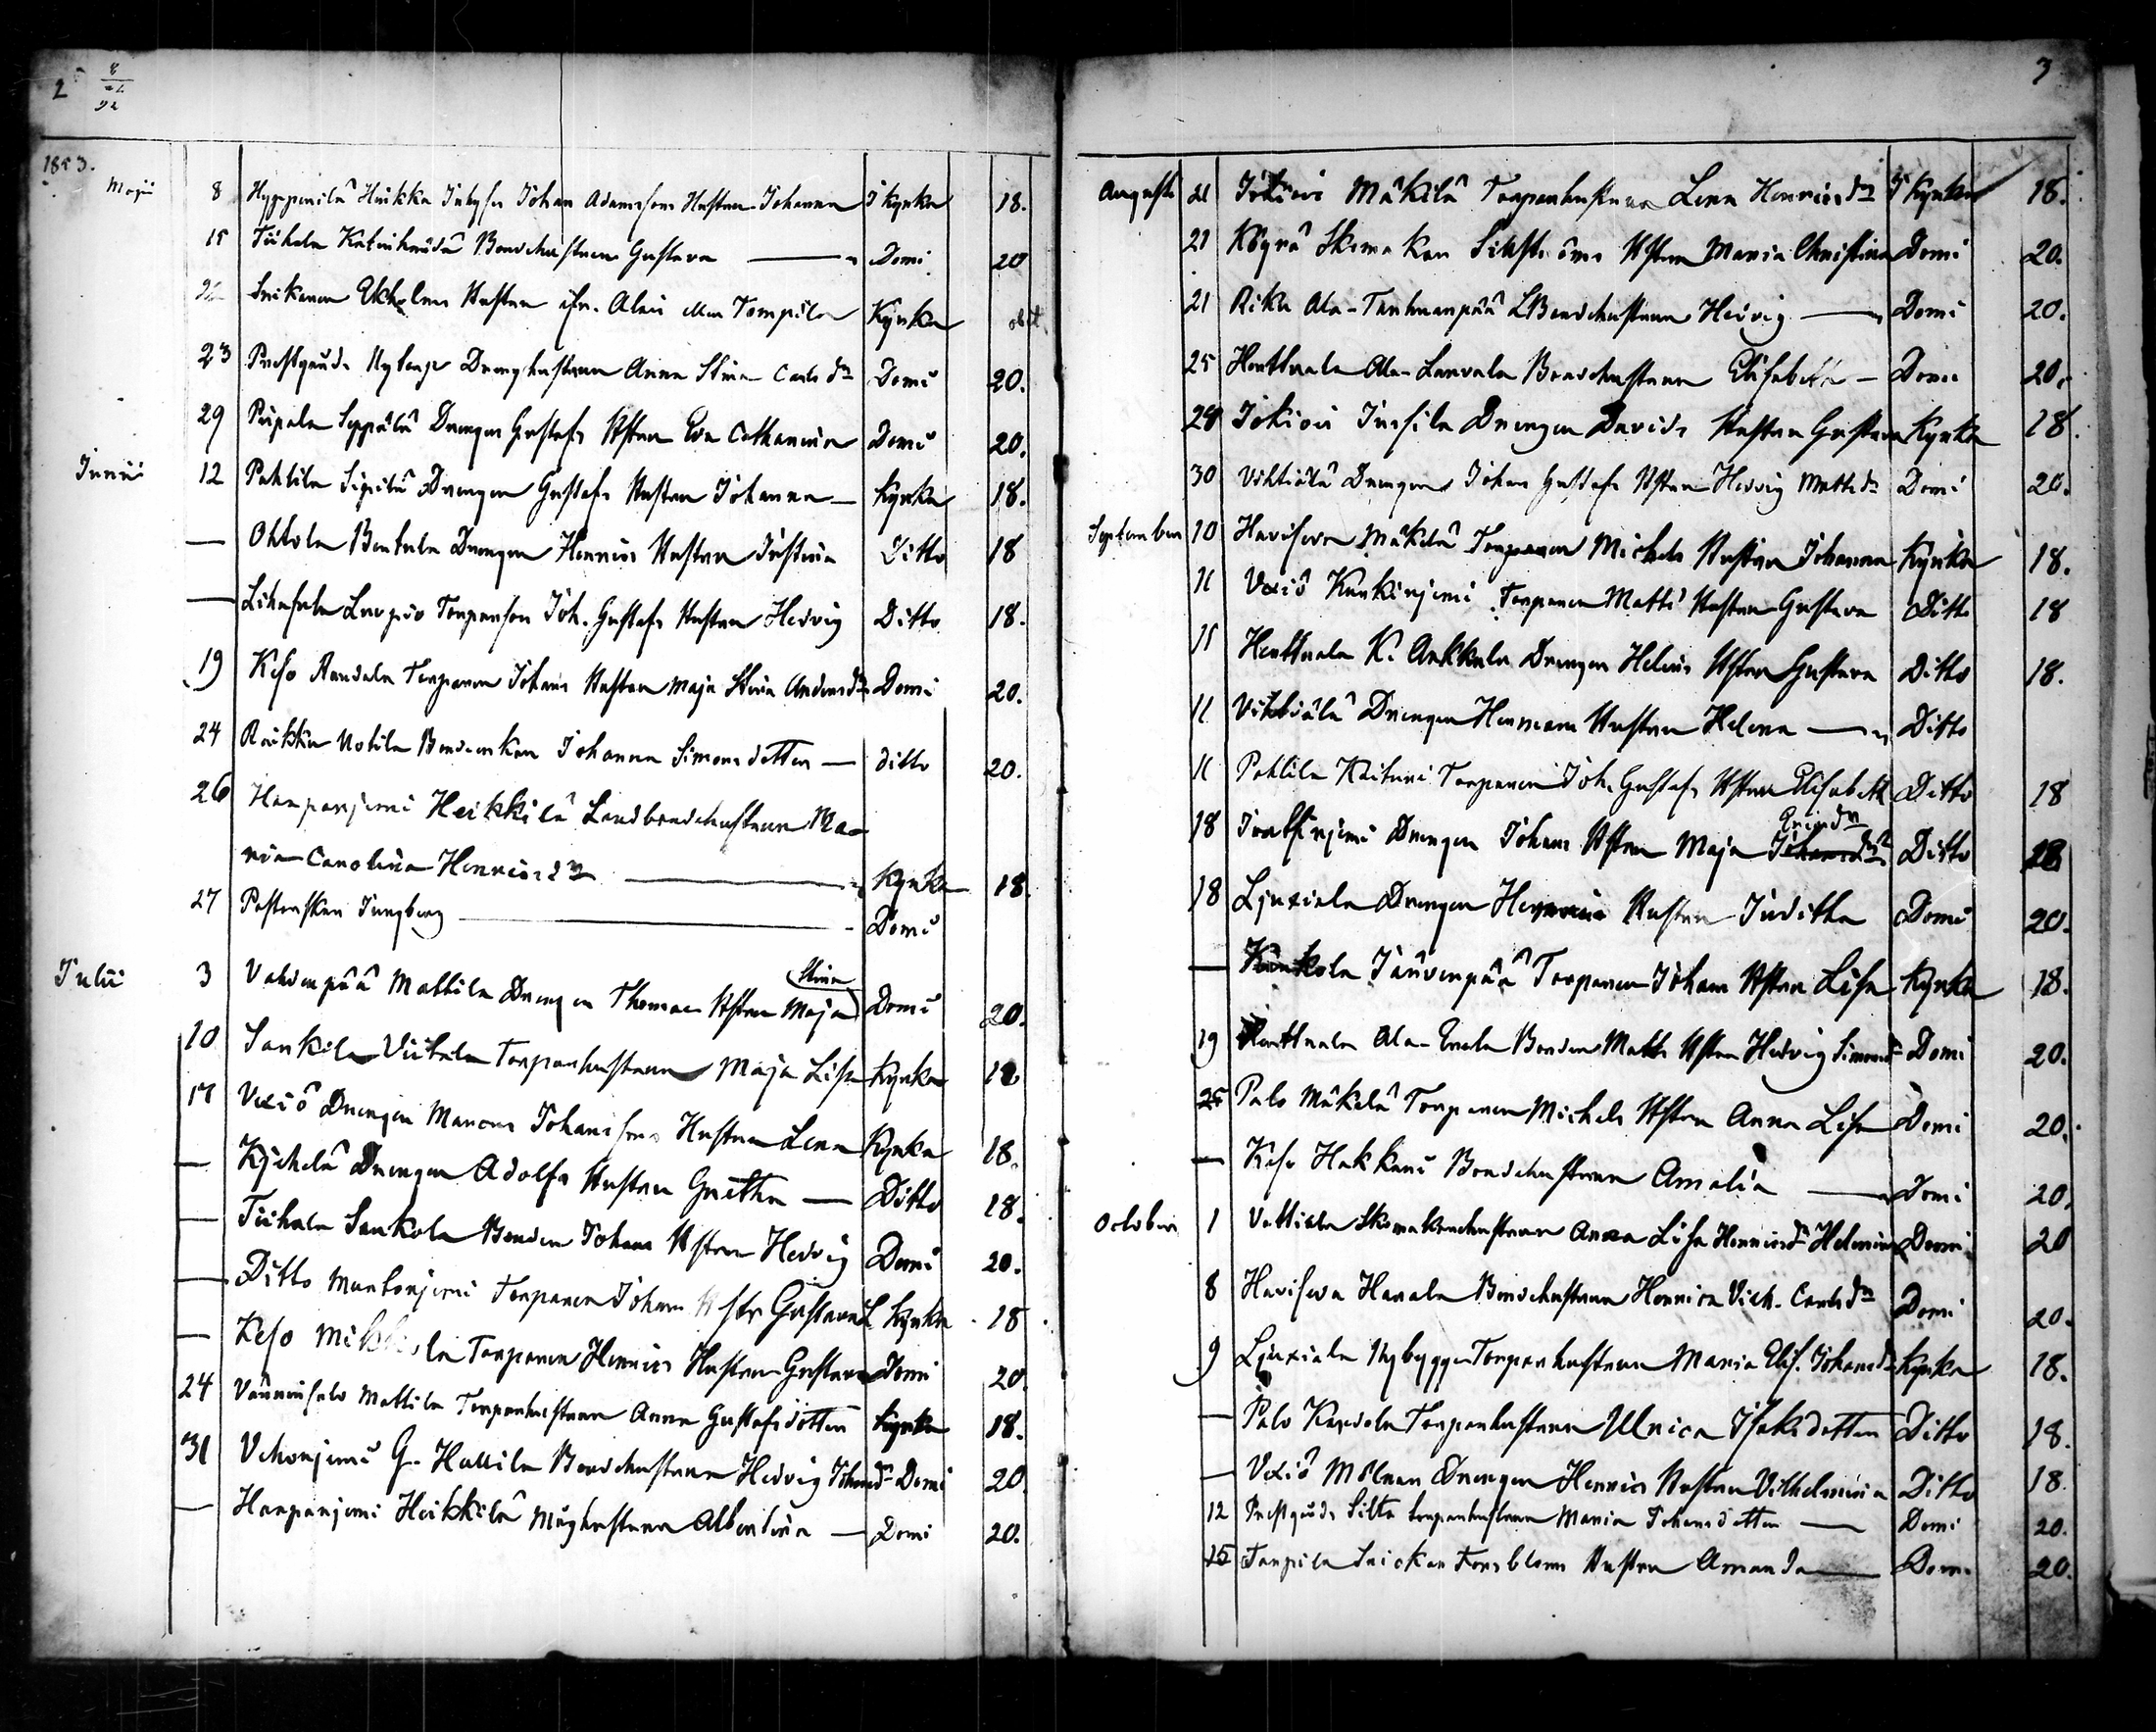 2
3
1853.
Maji 8 Heikka Johan Adamsson Hustru Johanna I Kyrka 18.
15 Tiihala Bondehustrun Gustava Domi 20
Ekholms Hustru Tompila Kyrka obit
23 Prestgårds Nybygg Drenghustrun Anna Stina Carlsdr Domi 20.
29 Piipala Seppälä Drengen Gustafs Hstru Eva Catharina Domi 20.
Junii 12 Pahlila Sipilä Drengen Gustafs Hustru Johanna Kyrka 18.
— Ohtola Bentula Drengen Henrics Hustru Justina Ditto 18
— Liehusala Laupio Torparson Joh. Gustafs Hustru Hedvig Ditto 18.
19 Keso Randala Torparen Johans Hustru Maja Stina Andersdr Domi 20.
24 Räikkä Nohila Bondeenkan Johanna Simonsdotter ditto 20.
26 Haapanjemi Heikkilä Landbondehustrun Ma-
ria Carolina Henricsdr Kyrka 18.
27 Pastorskan Ljungberg Domi
Julii 3 Vahdenpää Mattila Drengen Thomas Hstru Maja Stina Domi 20.
10 Sankila Viitala Torparhustrun Maja Lisa Kyrka 18
17 Vexiö Drengen Marcus Johanssons Hustru Lena Kyrka 18.
— Kyhelä Drengen Adolfs Hustru Gretha Ditto 18.
— Tiihala Sankola Bonden Johans Hstru Hedvig Domi 20.
— Ditto Mantonjemi Torparen Johans Hstr Gustava Kyrka 18
— Keso Mikkola Torparen Henrics Hustru Gustava Domi 20.
24 Vänninsalo Mattila Torparhustrun Anna Gustafsdotter Kyrka 18.
31 Vehonjemi G. Hallila Bondehustrun Hedvig Johansdr Domi 20
— Haapanjemi Heikkilä Måghustrun Albertina Domi 20.
Augusti 21 Jokiois Mäkilä Torparhustrun Lena Henricsdr I Kyrka 18.
21 Köyrä Skomakar Sihlströms Hstru Maria Christina Domi 20.
21 Rika Ala-Tanhuanpää LBondehustrun Hedvig Domi 20.
25 Honttuala Ala-Laurila Bondehustrun Elisabeth Domi 20.
28 Jokiois Jussila Drengen Davids Hustru Gustava Kyrka 18.
30 Vihtiälä Drengen Johan Gustafs Hstru Hedvig Mattsdr Domi 20.
September 10 Haviseva Mäkelä Torparen Michels Hustru Johanna Kyrka 18.
11 Vexiö Kaukinjemi Torparen Matts Hustru Gustava Ditto 18
11 Honttuala K. Ankkula Drengen Helins Hstru Gustava Ditto 18.
11 Vihtiälä Drengen Hermans Hustru Helena Ditto
11 Pahlila Kaituri Torparen Joh Gustafs Hstru Elisabeth Ditto 18
18 Drengen Johans Hstru Maja Ericsdr Ditto 18
18 Ljuxiala Drengen Henrics Hustru Juditha Domi 20.
— Kaukola Järvenpää Torparen Johans Hstru Lisa Kyrka 18.
19 Honttuala Ala-Erola Bonden Matts Hstru Hedvig Simonsdr Domi 20.
25 Palo Mäkelä Torparen Michels Hstru Anna Lisa Domi 20.
— Keso Hakkari Bondehustrun Amalia Domi 20.
October 1 Vattiala Skomakarehustrun Anna Lisa Henricsdr Helenius Domi 20
8 Havisева Harala Bondehustrun Henrica Vilh. Carlsdr Domi 20.
9 Ljuxiala Nybygge Torparhustrun Maria Elis. Johansdr Kyrka 18.
— Palo Kardola Torparhustrun Ulrica Isaksdotter Ditto 18.
— Vexiö Mölnar Drengen Henrics Hustru Vilhelmina Ditto 18.
12 Prestgårds Silta torparhustrun Maria Johansdotter Domi 20.
15 Tarpila Snickar Forsbloms Hustru Amanda Domi 20.